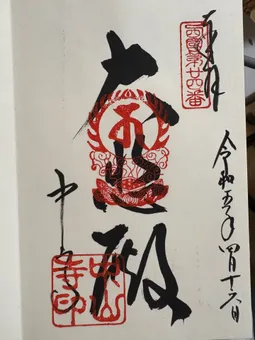 奉拝
西國第廿四番
令和五年四月十六日
大悲殿
中山寺
中山寺印